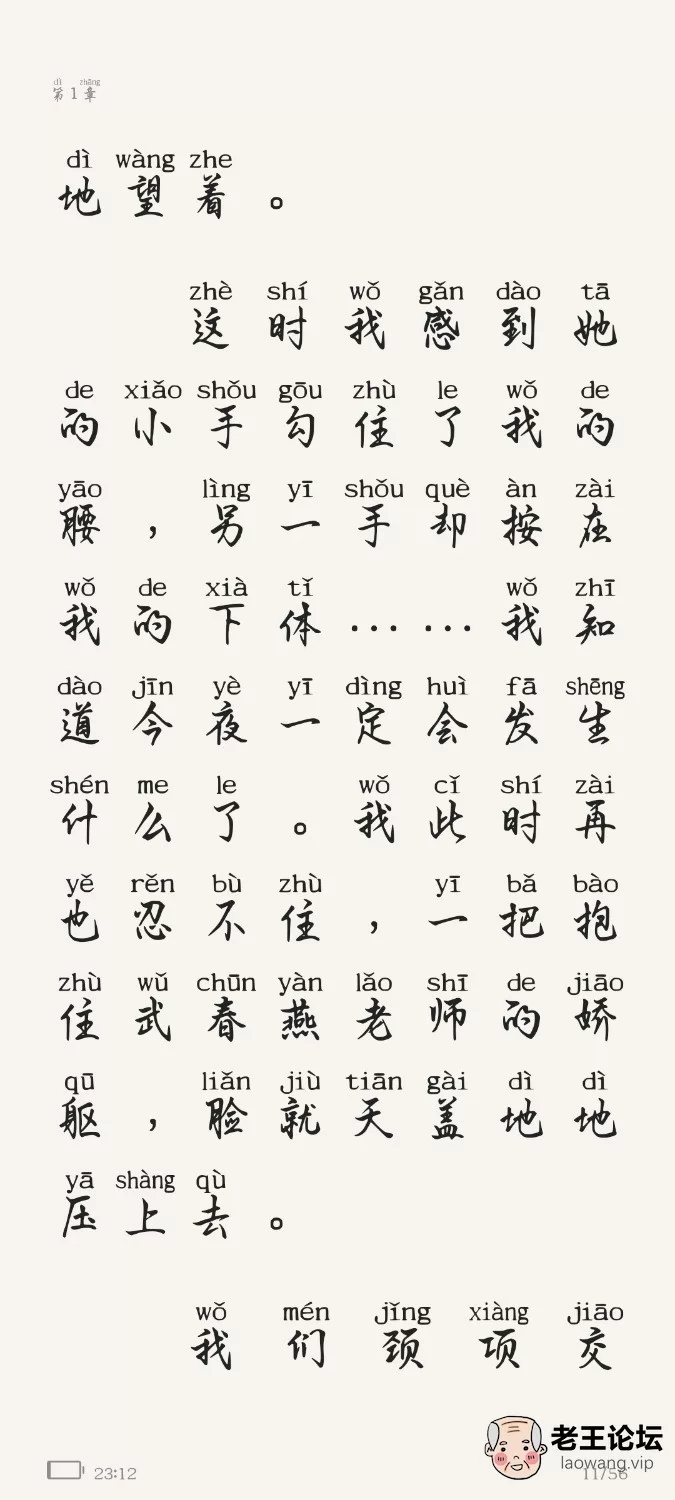 dì zhāng
第 1 章
dì wàng zhe
地望着。
zhè shí wǒ gǎn dào tā
这时我感到她
de xiǎo shǒu gōu zhù le wǒ de
的小手勾住了我的
yāo lìng yī shǒu què àn zài
腰，另一手却按在
wǒ de xià tǐ wǒ zhī
我的下体……我知
dào jīn yè yī dìng huì fā shēng
道今夜一定会发生
shén me le wǒ cǐ shí zài
什么了。我此时再
yě rěn bù zhù yī bǎ bào
也忍不住，一把抱
zhù wǔ chūn yàn lǎo shī de jiāo
住武春燕老师的娇
qū liǎn jiù tiān gài dì dì
躯，脸就天盖地地
yā shàng qù
压上去。
wǒ mén jǐng xiàng jiāo
我们颈项交
老王论坛
laowang.vip
23:12
11/56